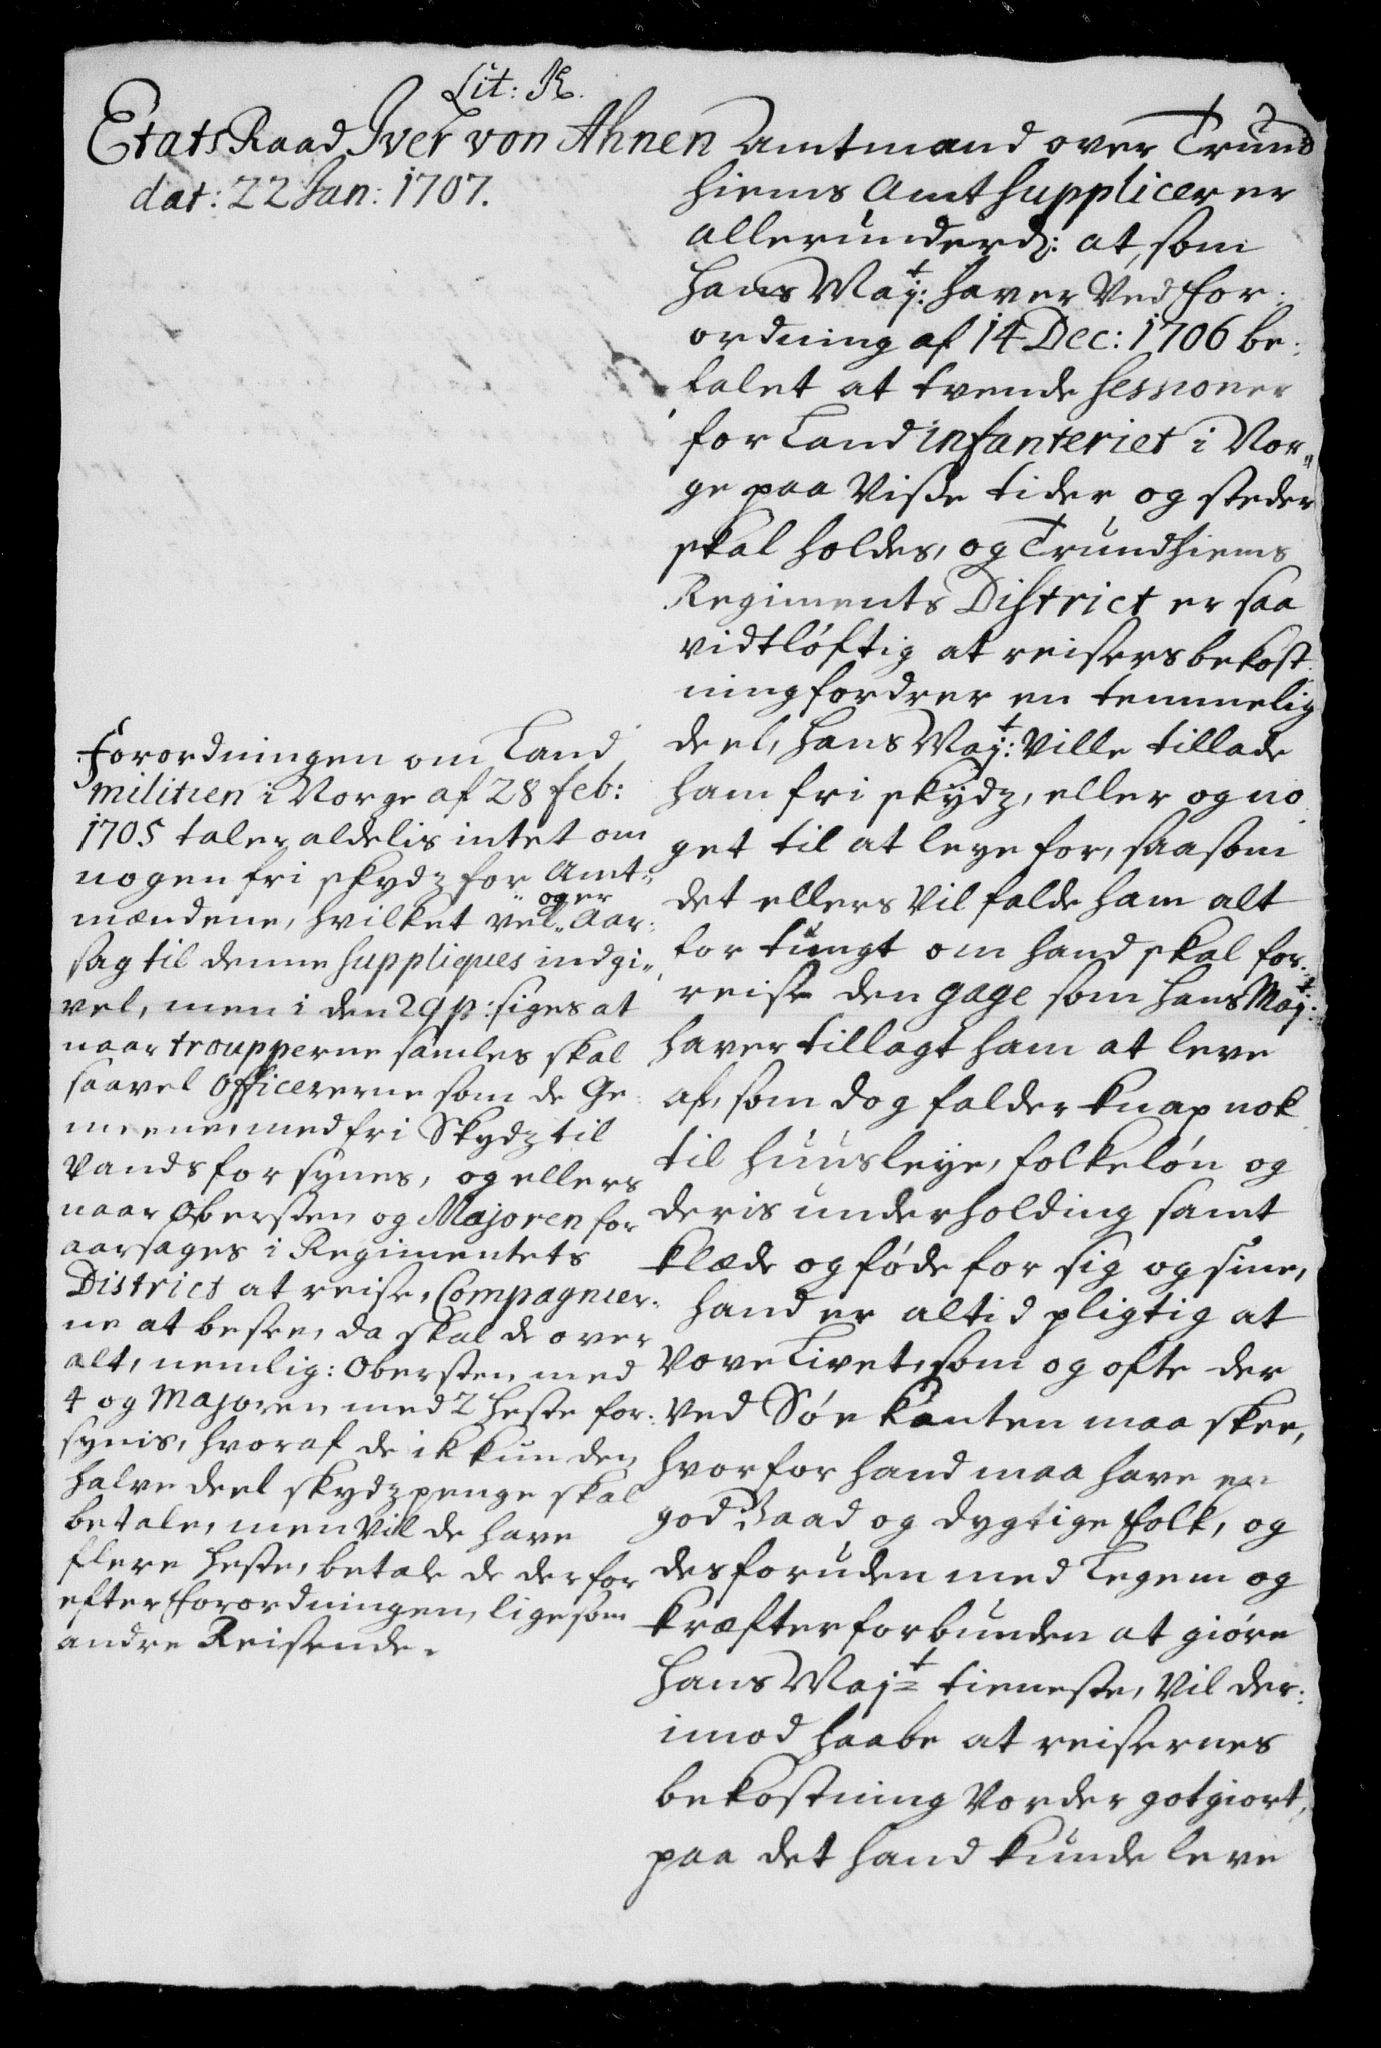 Lit: K.
Etats Raad Iver von Ahnen Amtmand over Trund
dat: 22 Jan: 1707.
hiems Amt supplicerer
allerunderd: at, som
hans Maj:t haver ved for-
ordning af 14 Dec: 1706 be-
falet at tvende sessioner
for Land infanteriet i Nor-
ge paa visse tider og steder
skal holdes, og Trundhiems
Regiments District er saa
vidtløftig at reisers bekost-
ning fordrer en temmelig
deel, hans Maj:t ville tillade
ham fri skydz, eller og no
get til at leye for, saasom
det ellers vil falde ham alt
for tungt om hand skal for-
reise den gage som hans Maj:t
haver tillagt ham at leve
af, som dog falder knap nok
til huusleye, folkeløn og
deris underholding samt
klæde og føde for sig og sine,
hand er altid pligtig at
vove Livet, som og ofte der
ved Søe kanten maa skee,
hvorfor hand maa have en
god Baad og dygtige folk, og
desforuden med Legem og
kræfter forbunden at giøre
hans Maj:t tieneste, vil der-
imod haabe at reisernes
bekostning vorder gotgiort,
paa det hand kunde leve
Forordningen om Land
militien i Norge af 28 feb:
1705 taler aldelis intet om
nogen fri skydz for Amt-
mændene, hvilket vel og er aar-
sag til denne suppliques indgi-
vel, men i den 29 p: siges at
naar troupperne samles skal
saavel Officererne som de Ge-
meene, med fri Skydz til
Vands forsynes, og ellers
naar Obersten og Majoren for
aarsages i Regimentets
District at reise, Compagnier-
ne at besee, da skal de over
alt, nemlig: Obersten med
4 og Majoren med 2 heste for-
synis, hvoraf de ikkun den
halve deel skydzpenge skal
betale, men vil de have
flere heste, betale de derfor
efter forordningen, lige som
andre Reisende.